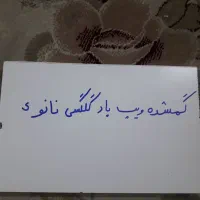 گمشده ویب یادگلگسی نانوی